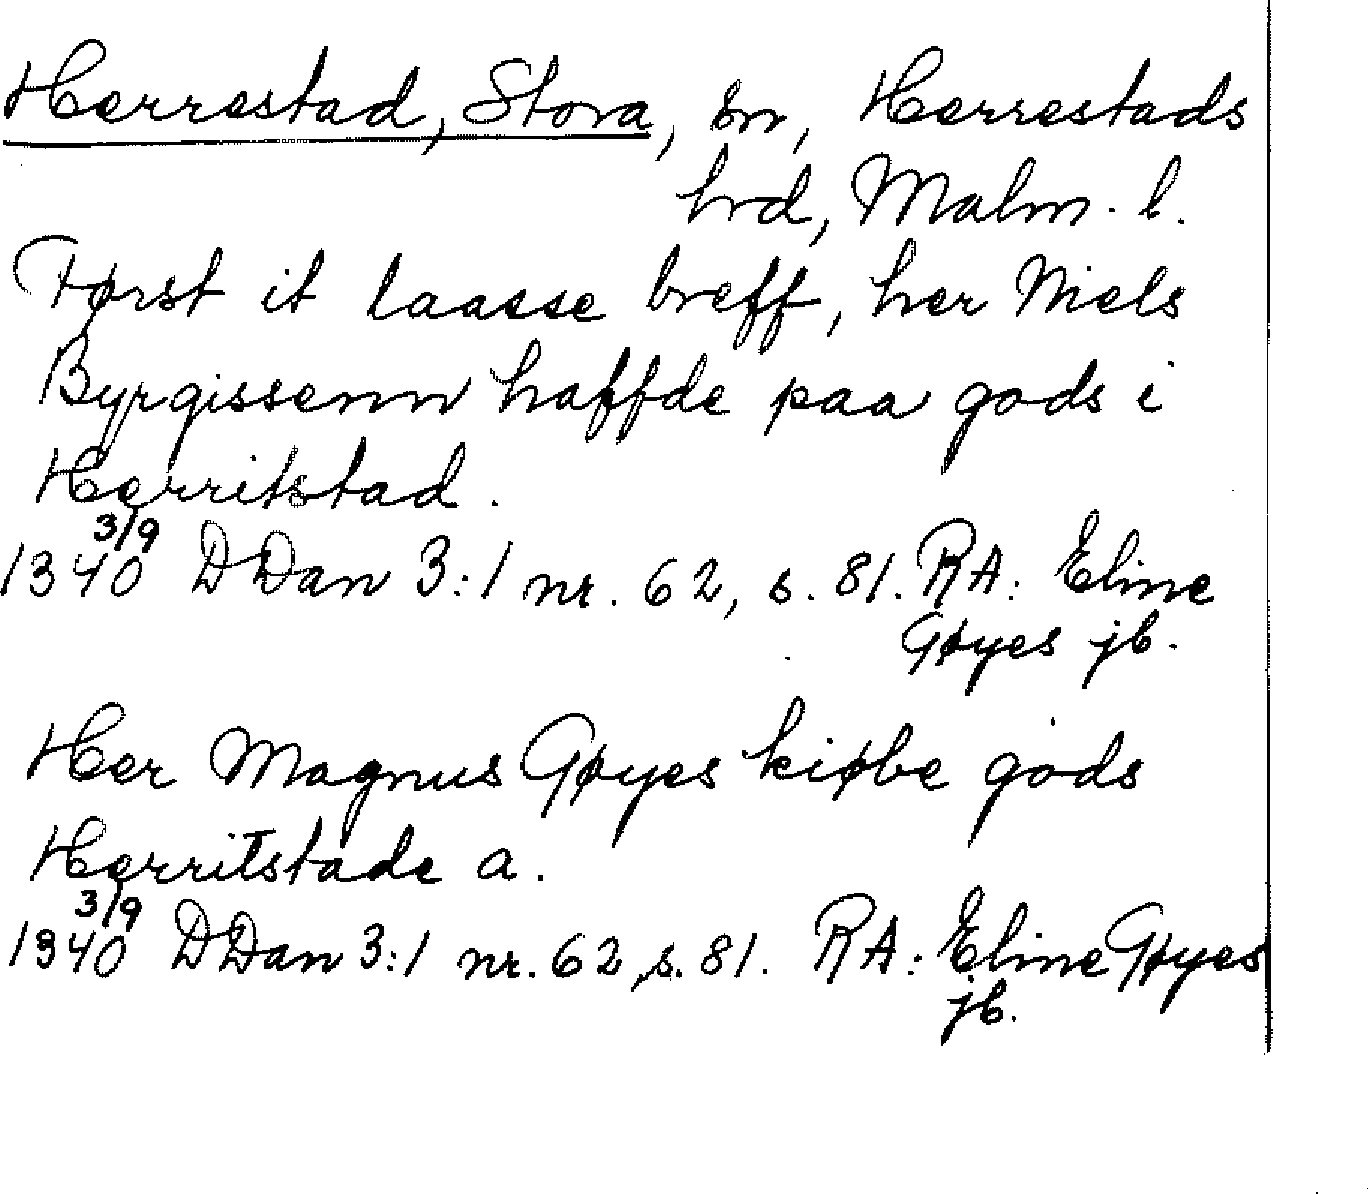 Herrestad, Stora, sn, Herrestads
hrd, Malm. l.
Først it laasse breff, her Niels
Byrgissenn haffde paa gods i
Herritstad.
3/9
1340 DDan 3:1 nr. 62, s. 81. RA: Eline
Gøyes jb.
Her Magnus Gøyes kiøbe gods
Herritstade a.
3/9
1340 DDan 3:1 nr. 62, s. 81. RA: Eline Gøyes
jb.